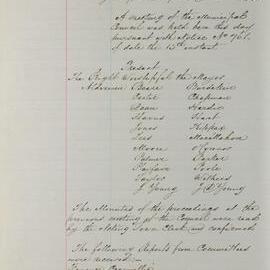 A meeting of the Municipal
Council was held here this day
pursuant with Notice No 761
of date the 13th instant
Present
The Right Worshipful the Mayor
Aldermen Beare Burdekin
Chapman
Dean Hardie
Harris Hart
Jones Kippax
Lees Macmahon
Moore O'Connor
Palmer Parker
Playfair Poole
Taylor Withers
J Young J D Young
The Minutes of the proceedings at the
previous meeting of the Council were read
by the Acting Town Clerk and confirmed
The following Reports from Committees
were received :-
Committee